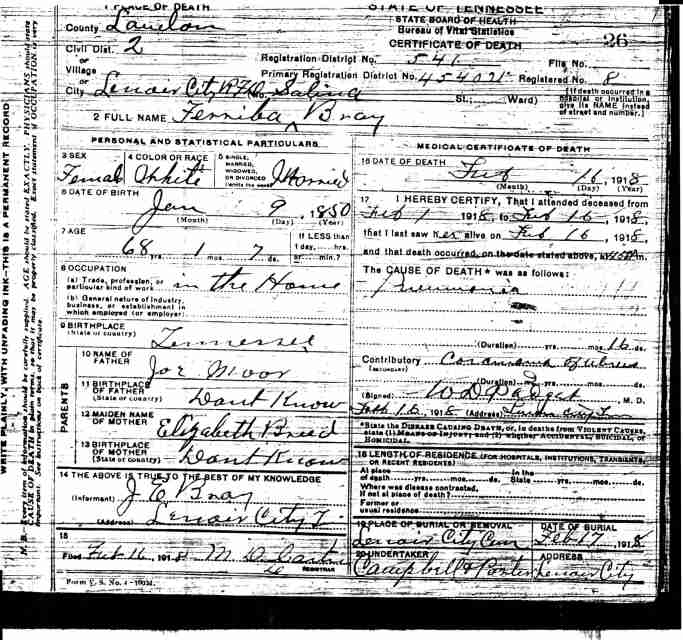 1 PLACE OF DEATH
County Loudon
Civil Dist. 2
or
Village
or
City Lenoir City
2 FULL NAME Bray
STATE OF TENNESSEE
STATE BOARD OF HEALTH
Bureau of Vital Statistics
CERTIFICATE OF DEATH
26
Registration District No. 541 File No.
Primary Registration District No. Registered No. 8
St.; Ward)
(If death occurred in a hospital or institution,
give its NAME instead
of street and number.)
PERSONAL AND STATISTICAL PARTICULARS
3 SEX
Female
4 COLOR OR RACE
White
5 SINGLE,
MARRIED,
WIDOWED,
OR DIVORCED
(Write the word)
6 DATE OF BIRTH
Jan 9, 1850
(Month) (Day) (Year)
7 AGE
68 yrs. 1 mos. 7 ds.
If LESS than
1 day, ... hrs.
or ... min.?
8 OCCUPATION
(a) Trade, profession, or
particular kind of work in the Home
(b) General nature of industry,
business, or establishment in
which employed (or employer)
9 BIRTHPLACE
(State or country) Tennessee
PARENTS
10 NAME OF
FATHER Joe Moor
11 BIRTHPLACE
OF FATHER
(State or country) Dont Know
12 MAIDEN NAME
OF MOTHER Elizabeth
13 BIRTHPLACE
OF MOTHER
(State or country) Dont Know
14 THE ABOVE IS TRUE TO THE BEST OF MY KNOWLEDGE
(Informant) J Bray
(Address) Lenoir City T
15
Filed Feb 16, 1918
REGISTRAR
MEDICAL CERTIFICATE OF DEATH
16 DATE OF DEATH
Feb 16, 1918
(Month) (Day) (Year)
17 I HEREBY CERTIFY, That I attended deceased from
Feb 1 1918, to Feb 16, 1918,
that I last saw her alive on Feb 16, 1918,
and that death occurred, on the date stated above, at
The CAUSE OF DEATH* was as follows:
Pneumonia
(Duration) yrs. mos. 16 ds.
Contributory
(SECONDARY)
(Duration) yrs. mos. ds.
(Signed) W D Padget M. D.
Feb 16, 1918 (Address)
*State the DISEASE CAUSING DEATH, or, in deaths from VIOLENT CAUSES,
state (1) MEANS OF INJURY; and (2) whether ACCIDENTAL, SUICIDAL, or
HOMICIDAL.
18 LENGTH OF RESIDENCE (FOR HOSPITALS, INSTITUTIONS, TRANSIENTS,
OR RECENT RESIDENTS)
At place
of death yrs. mos. ds.
In the
State yrs. mos. ds.
Where was disease contracted,
If not at place of death?
Former or
usual residence
19 PLACE OF BURIAL OR REMOVAL
Lenoir City Cem
DATE OF BURIAL
Feb 17, 1918
20 UNDERTAKER
Campbell &
ADDRESS
Lenoir City
WRITE PLAINLY, WITH UNFADING INK—THIS IS A PERMANENT RECORD
N. B.—Every item of information should be carefully supplied. AGE should be stated EXACTLY. PHYSICIANS should state
CAUSE OF DEATH in plain terms, so that it may be properly classified. Exact statement of OCCUPATION is very
important. See instructions on back of certificate.